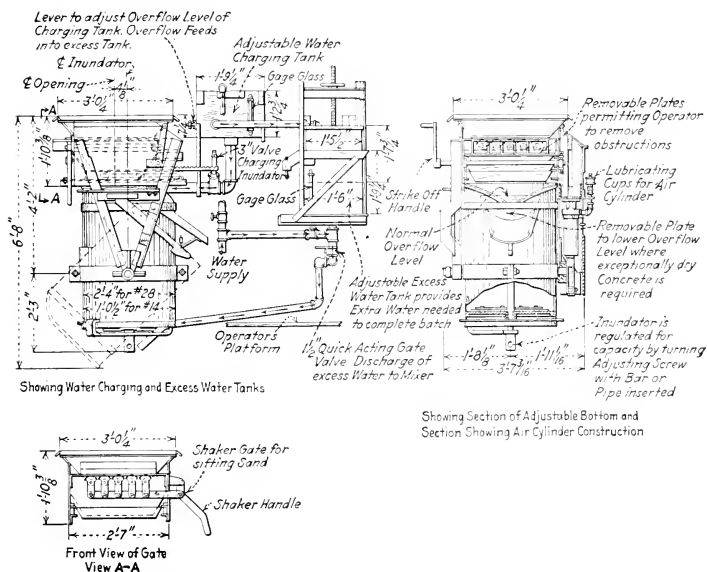 Lever to adjust Overflow Level of
Charging Tank. Overflow Feeds
into excess Tank.
℄ Inundator
℄ Opening
4 1/8"
3'-0 1/4"
A
A
1'-10 3/8"
4'-2"
6'-8"
2'-3"
1'-9 1/4"
Adjustable Water
Charging Tank
Gage Glass
3" Valve
Charging
Inundator
1'-5 1/2"
Gage Glass
1'-6"
Water
Supply
2'-4" for #28
1'-0 1/2" for #14
Operators
Platform
Adjustable Excess
Water Tank provides
Extra Water needed
to complete batch
1 1/2" Quick Acting Gate
Valve Discharge of
excess Water to Mixer
Showing Water Charging and Excess Water Tanks
3'-0 1/4"
Removable Plates
permitting Operator
to remove
obstructions
Lubricating
Cups for Air
Cylinder
Strike Off
Handle
Normal
Overflow
Level
Removable Plate
to lower Overflow
Level where
exceptionally dry
Concrete is
required
Inundator is
regulated for
capacity by turning
Adjusting Screw
with Bar or
Pipe inserted
1'-8 1/8"
1'-11 1/16"
3'-7 3/16"
Showing Section of Adjustable Bottom and
Section Showing Air Cylinder Construction
3'-0 1/4"
Shaker Gate for
sifting Sand
1'-10 3/8"
Shaker Handle
2'-7"
Front View of Gate
View A-A